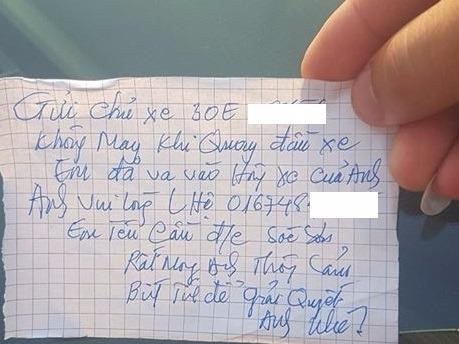 Gửi chủ xe 30E
Không May Khi Quay đầu xe
Em đã va vào Hông xe của Anh
Anh vui lòng LHệ 016748
Em Tên Cần đ/c Sóc Sơn
Rất Mong Anh Thông Cảm
để giải Quyết
Anh Nhé?